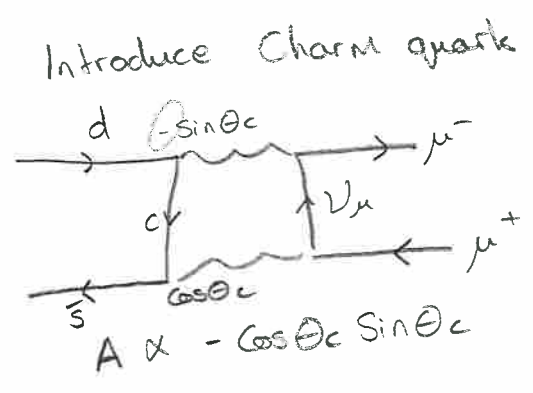 Introduce Charm quark
d
-sinθc
μ⁻
c
νμ
μ⁺
s̄
cosθc
A ∝ - Cosθc Sinθc